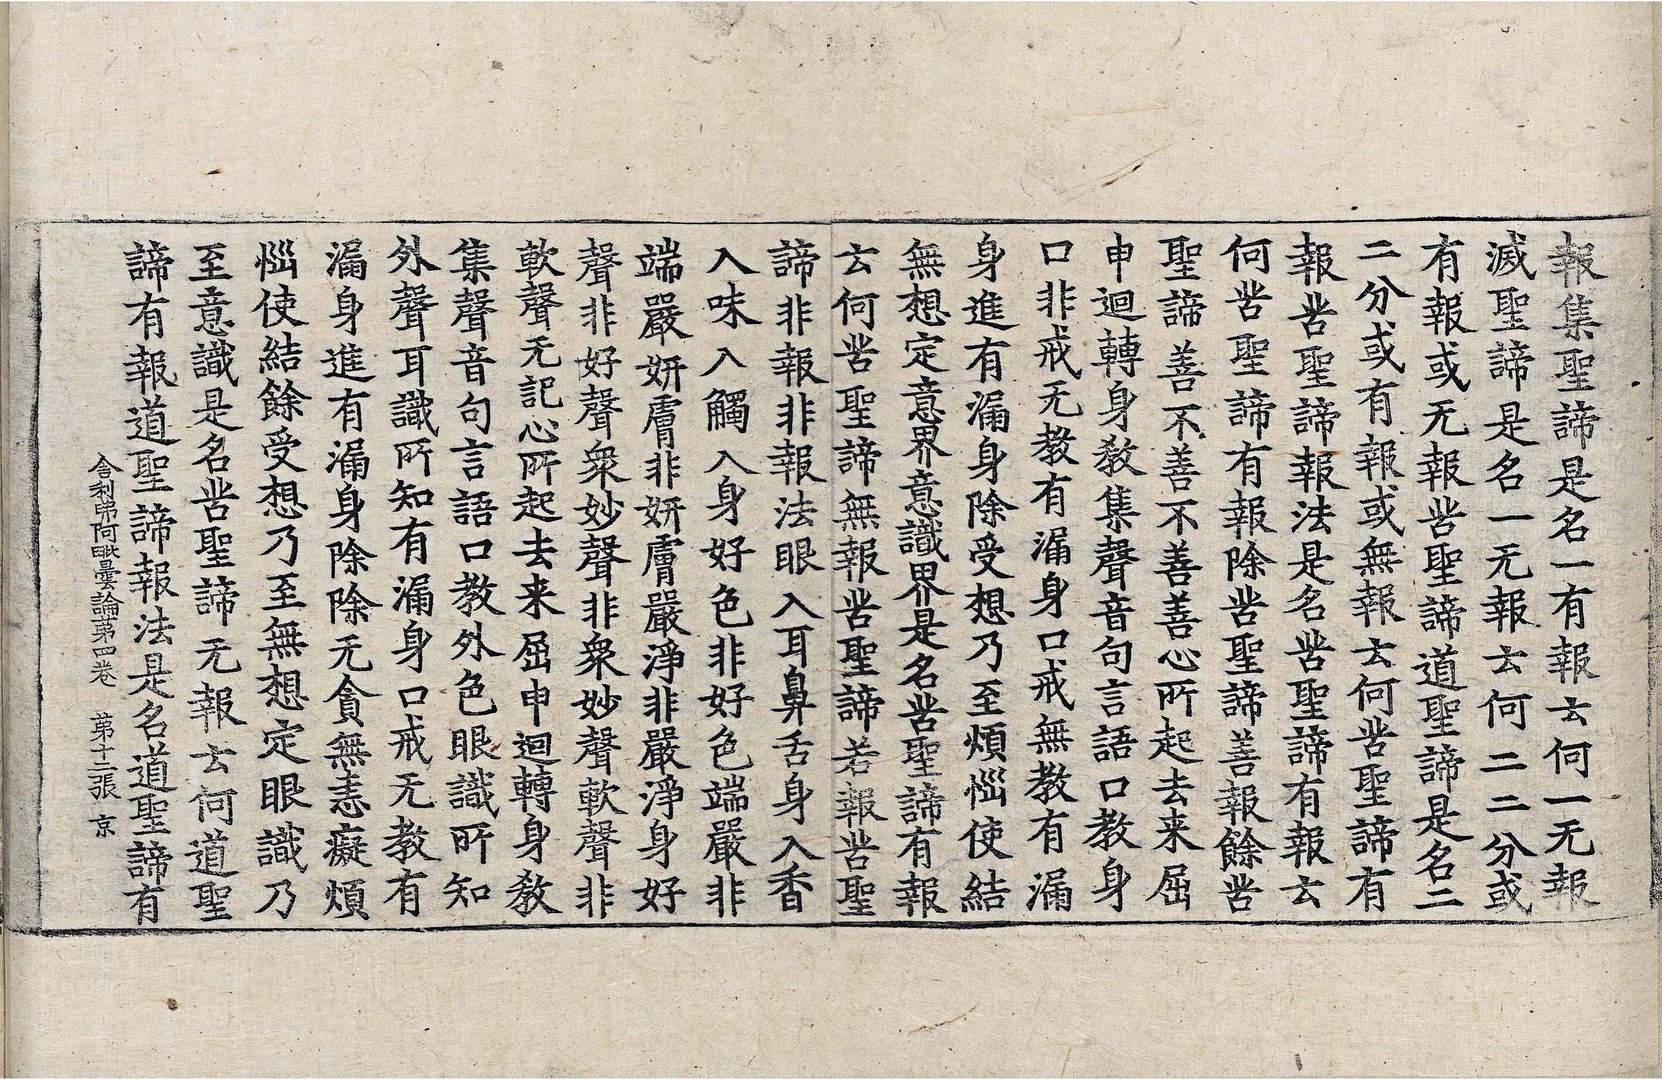 報集聖諦是名一有報云何一无報
滅聖諦是名一无報云何二二分或
有報或无報苦聖諦道聖諦是名二
二分或有報或無報云何苦聖諦有
報苦聖諦報法是名苦聖諦有報云
何苦聖諦有報除苦聖諦善報餘苦
聖諦善不善不善善心所起去来屈
申迴轉身教集聲音句言語口教身
口非戒无教有漏身口戒無教有漏
身進有漏身除受想乃至煩惱使結
無想定意界意識界是名苦聖諦有報
云何苦聖諦無報苦聖諦若報苦聖
諦非報非報法眼入耳鼻舌身入香
入味入觸入身好色非好色端嚴非
端嚴妍膚非妍膚嚴淨非嚴淨身好
聲非好聲衆妙聲非衆妙聲軟聲非
軟聲无記心所起去来屈申迴轉身教
集聲音句言語口教外色眼識所知
外聲耳識所知有漏身口戒无教有
漏身進有漏身除除无貪無恚癡煩
惱使結餘受想乃至無想定眼識乃
至意識是名苦聖諦无報云何道聖
諦有報道聖諦報法是名道聖諦有
舍利弗阿毗曇論苐四卷 苐十二張 京